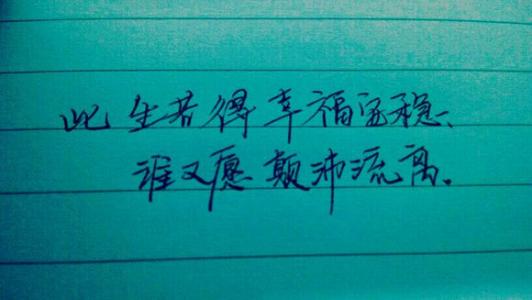 此生若得幸福安稳、
谁又愿颠沛流离.